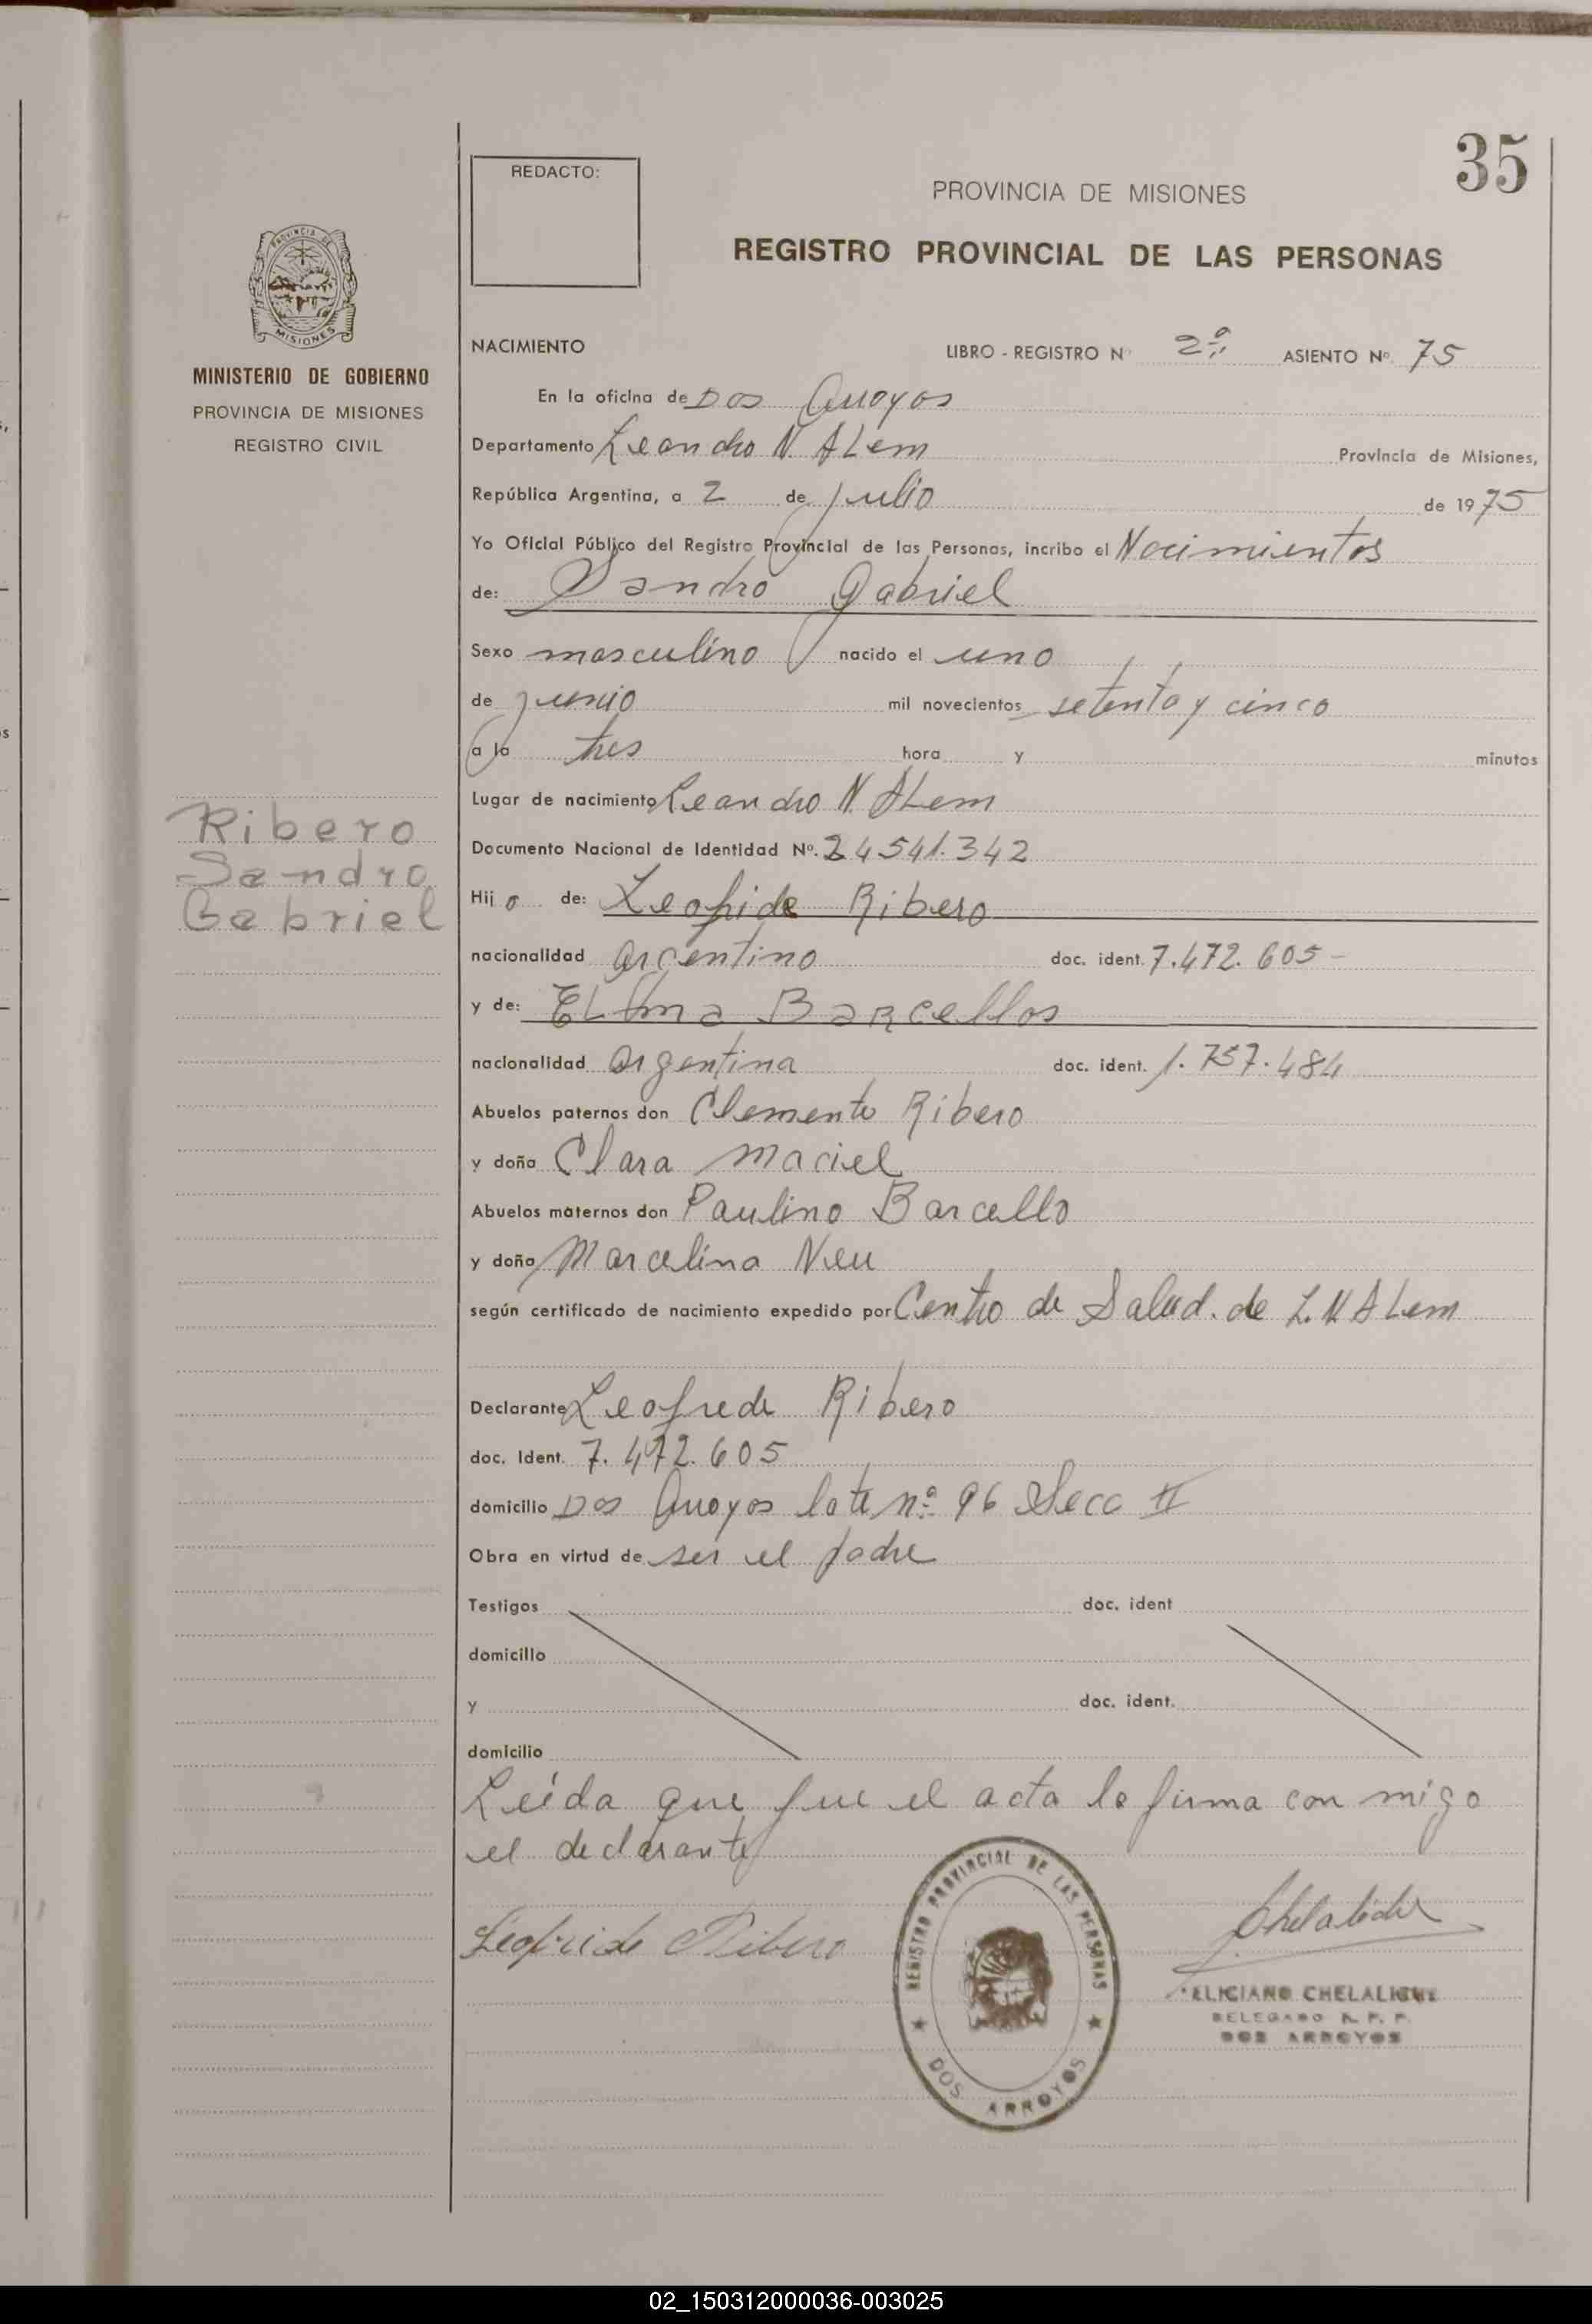 35
REDACTO:
PROVINCIA DE MISIONES
REGISTRO PROVINCIAL DE LAS PERSONAS
PROVINCIA DE
MISIONES
MINISTERIO DE GOBIERNO
PROVINCIA DE MISIONES
REGISTRO CIVIL
NACIMIENTO LIBRO - REGISTRO Nº 2º ASIENTO Nº 75
En la oficina de Dos Arroyos
Departamento Leandro N. ALem Provincia de Misiones,
República Argentina, a 2 de julio de 1975
Yo Oficial Público del Registro Provincial de las Personas, incribo el Nacimientos
de: Sandro Gabriel
Sexo masculino nacido el uno
de junio mil novecientos setenta y cinco
a la tres hora y minutos
Lugar de nacimiento Leandro N. ALem
Documento Nacional de Identidad Nº. 24541.342
Ribero
Sandro
Gabriel
Hijo de: Leofride Ribero
nacionalidad argentino doc. ident. 7.472.605-
y de: Barcellos
nacionalidad argentina doc. ident. 1.757.484
Abuelos paternos don Clemente Ribero
y doña Clara Maciel
Abuelos maternos don Paulino Barcello
y doña Marcelina Neu
según certificado de nacimiento expedido por Centro de Salud. de L. N ALem
Declarante Leofrede Ribero
doc. Ident. 7.472.605
domicilio Dos Arroyos lote nº 96 Secc II
Obra en virtud de ser el padre
Testigos doc. ident
domicilio
y doc. ident.
domicilio
Leída que fue el acta la firma con migo
el declarante
Leofride Ribero
REGISTRO PROVINCIAL DE LAS PERSONAS
DOS ARROYOS
ELICIANO CHELALICHE
DELEGADO R. P. P.
DOS ARROYOS
02_150312000036-003025